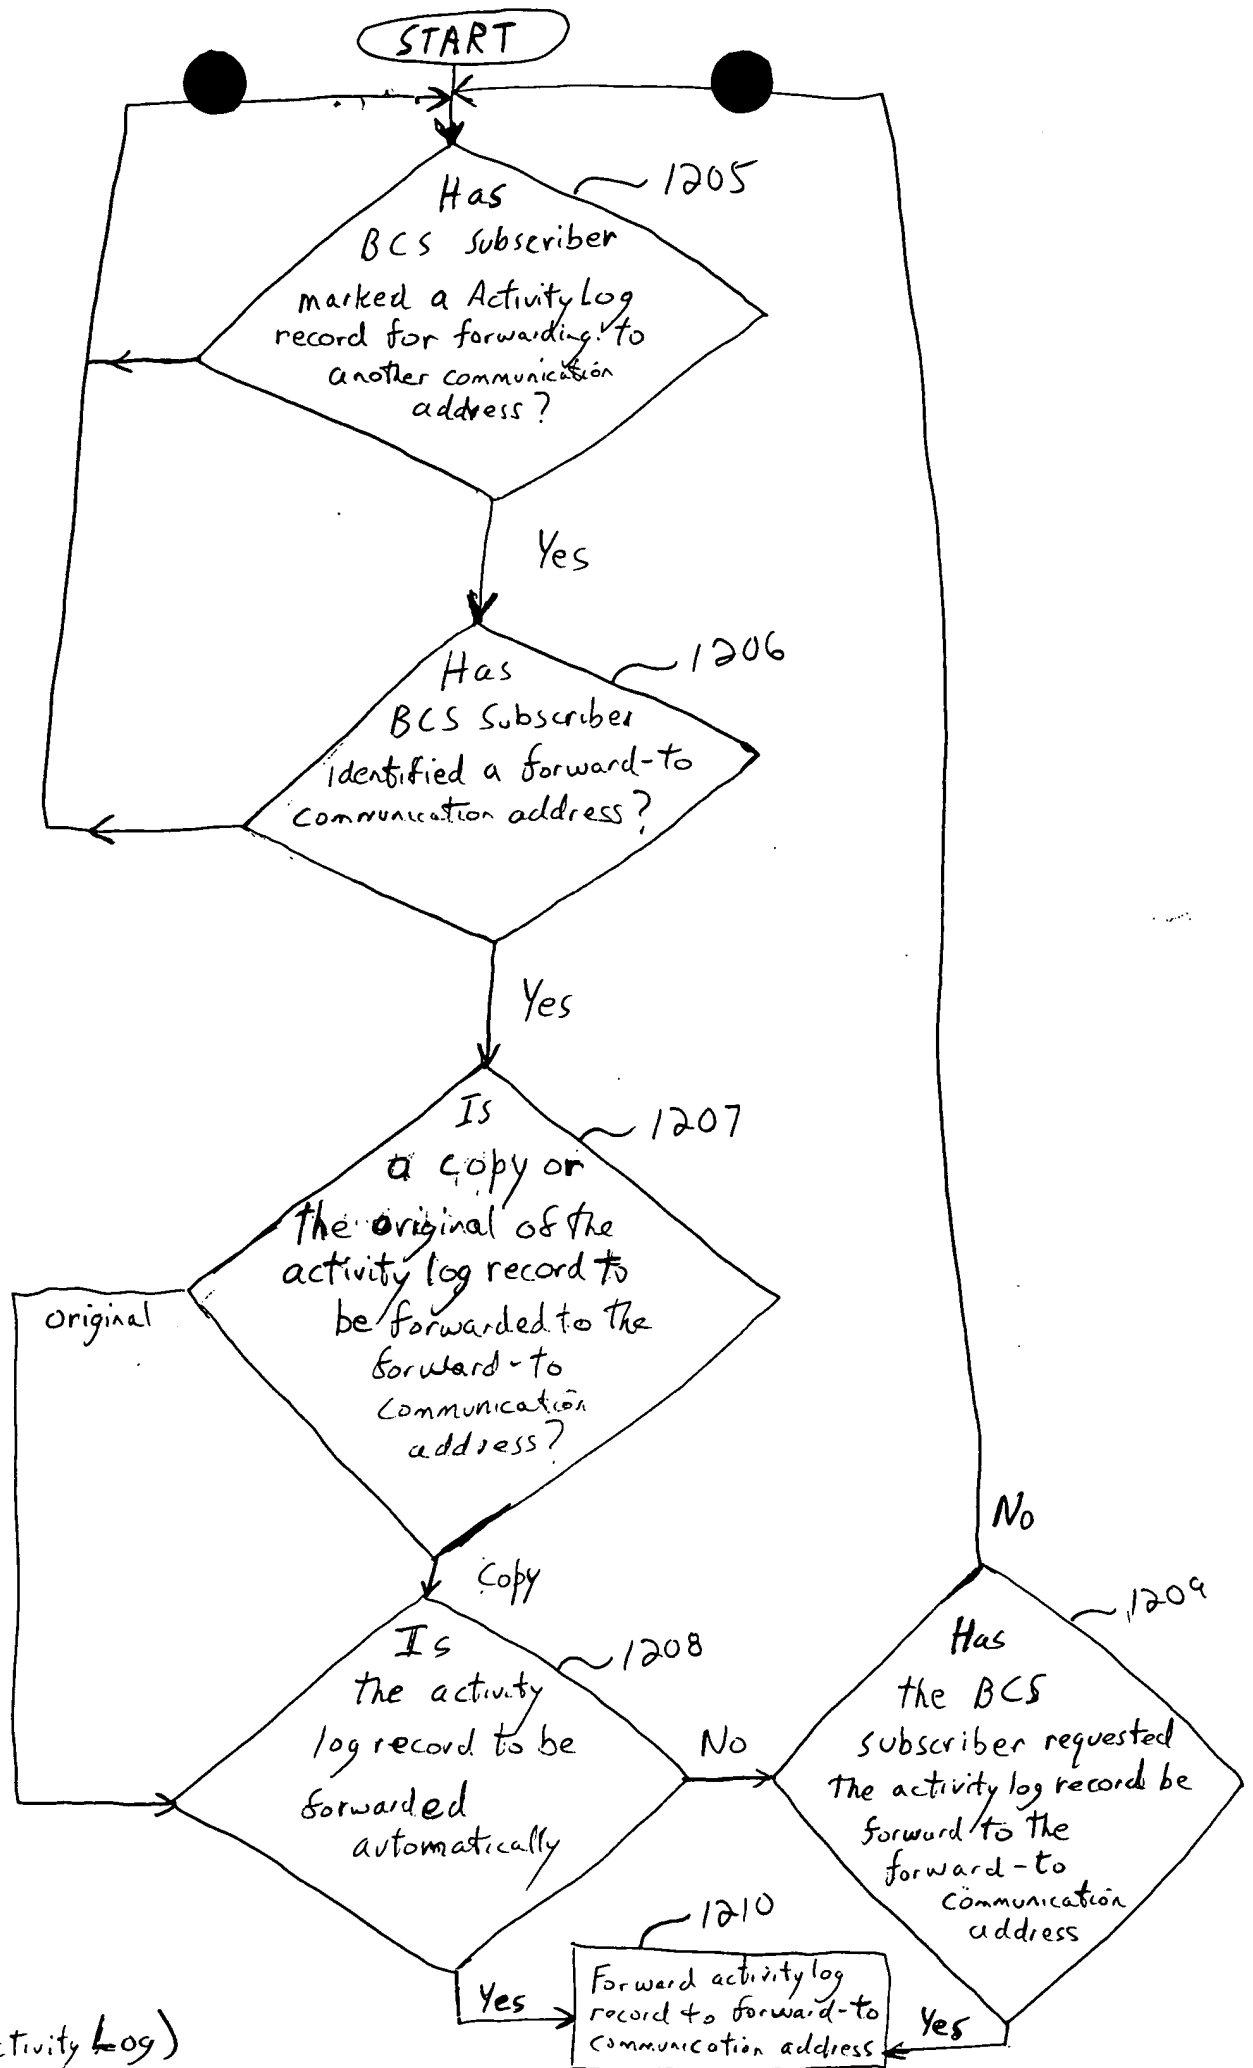 START
1205
Has
BCS Subscriber
marked a Activity Log
record for forwarding to
another communication
address?
Yes
1206
Has
BCS Subscriber
identified a forward-to
communication address?
Yes
1207
Is
a copy or
the original of the
activity log record to
be forwarded to the
forward-to
communication
address?
original
Copy
No
1208
Is
the activity
log record to be
forwarded
automatically
No
1209
Has
the BCS
subscriber requested
the activity log record be
forward to the
forward-to
communication
address
1210
Yes
Forward activity log
record to forward-to
communication address
Yes
ctivity Log)